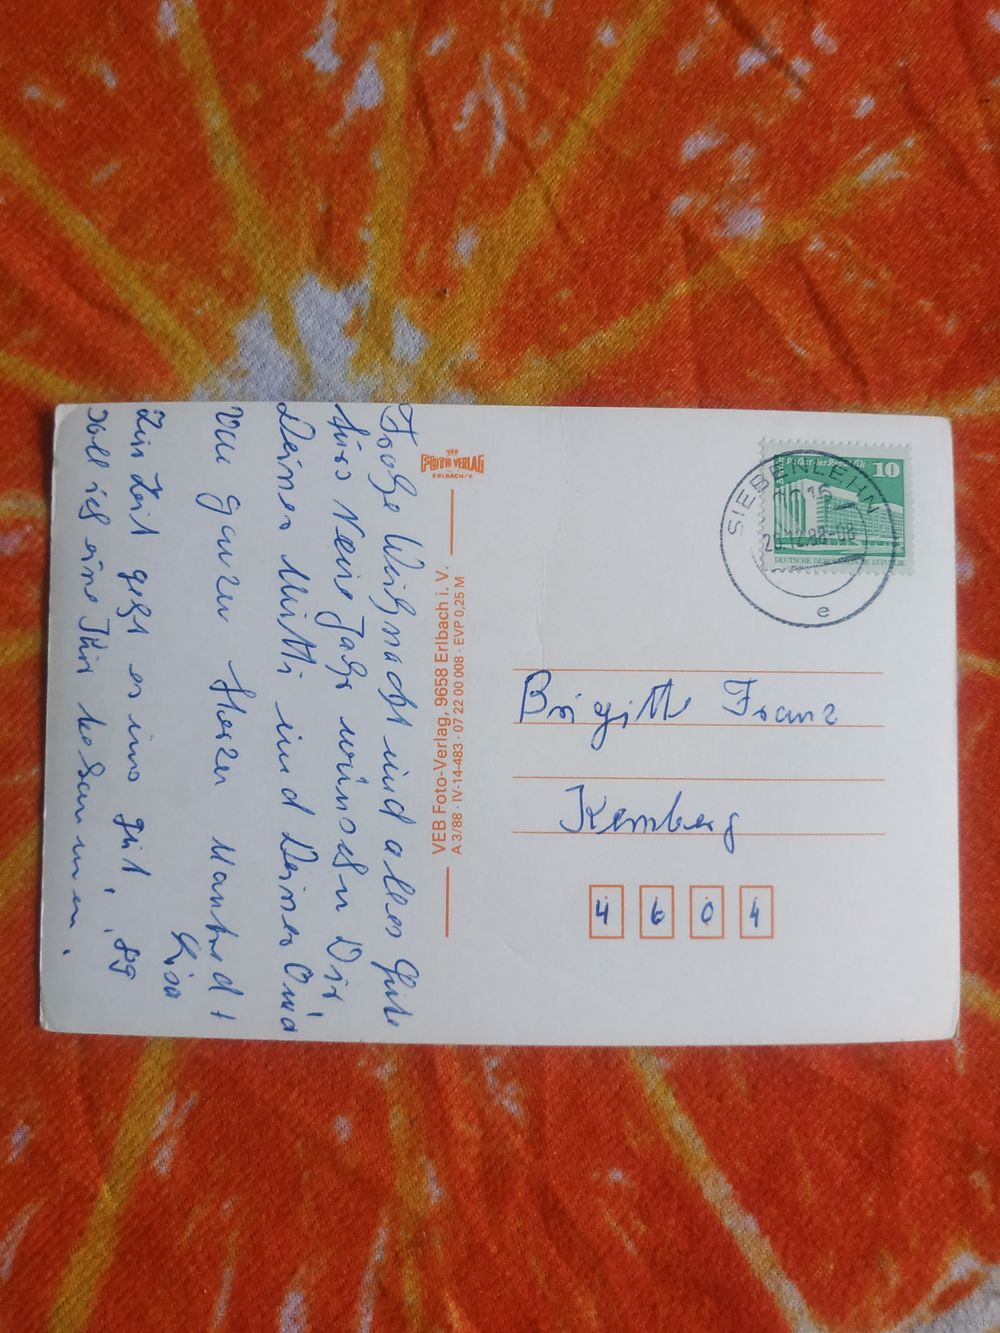 Frohe Weihnacht und alles Gute
fürs Neue Jahr wünschen Dir,
Deiner Mutti und Deiner Omi
von ganzen Herzen Manfred +
Lisa
Zur Zeit geht es uns gut, 89
soll ich eine Kur bekommen.
VEB
FOTO VERLAG
ERLBACH/V
VEB Foto-Verlag, 9658 Erlbach i. V.
A 3/88 · IV-14-483 · 07 22 00 008 · EVP 0,25 M
Palast der Republik 10
DEUTSCHE DEMOKRATISCHE REPUBLIK
SIEBENLEHN
20.12.88-08
e
Brigitte Franz
Kemberg
4 6 0 4